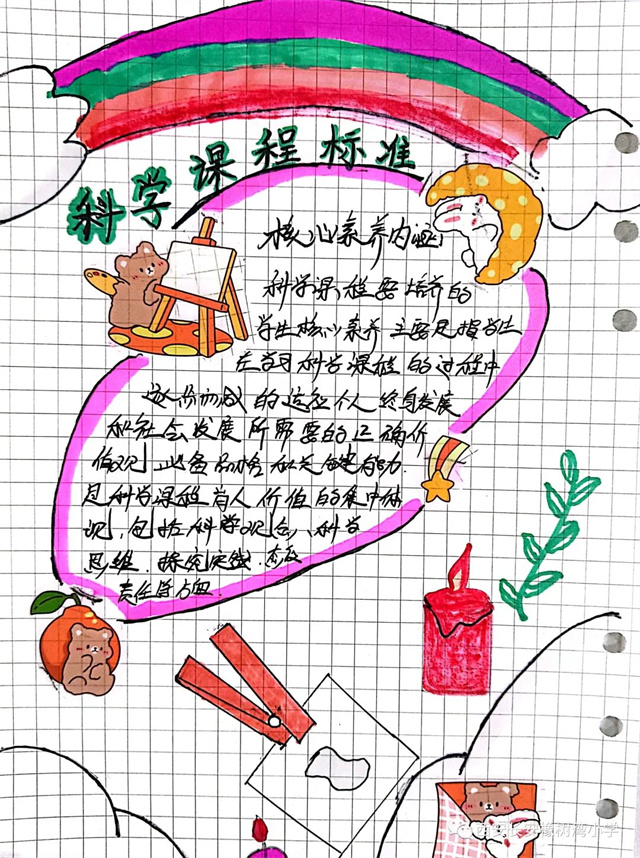 科学课程标准
核心素养内涵:
科学课程要培养的
学生核心素养 主要是指学生
在学习科学课程的过程中
逐步形成的适应个人终身发展
和社会发展所需要的正确价
值观、必备品格和关键能力.
是科学课程育人价值的集中体
现,包括科学观念、科学
思维、探究实践、态度
责任等方面.